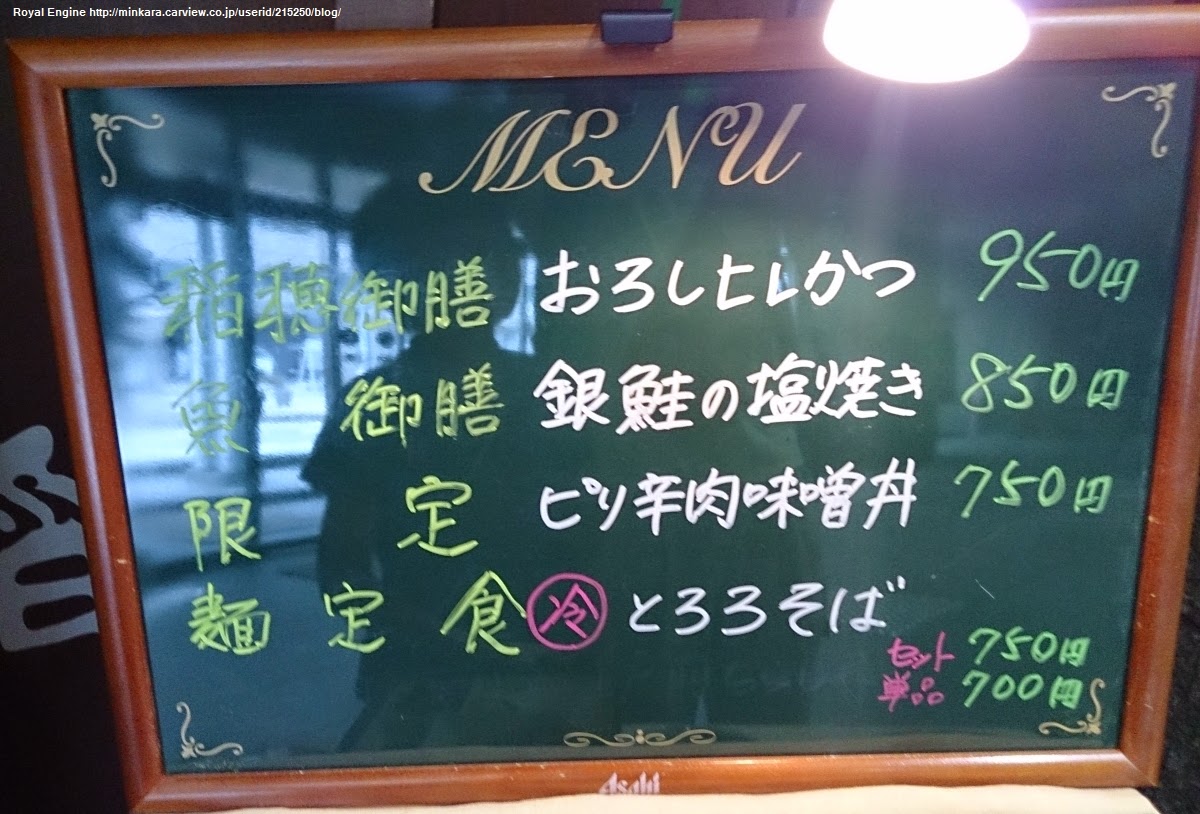 Royal Engine http://minkara.carview.co.jp/userid/215250/blog/
MENU
稲穂御膳 おろしヒレかつ 950円
魚 御膳 銀鮭の塩焼き 850円
限 定 ピリ辛肉味噌丼 750円
麺 定 食 冷 とろろそば
セット 750円
単品 700円
Asahi